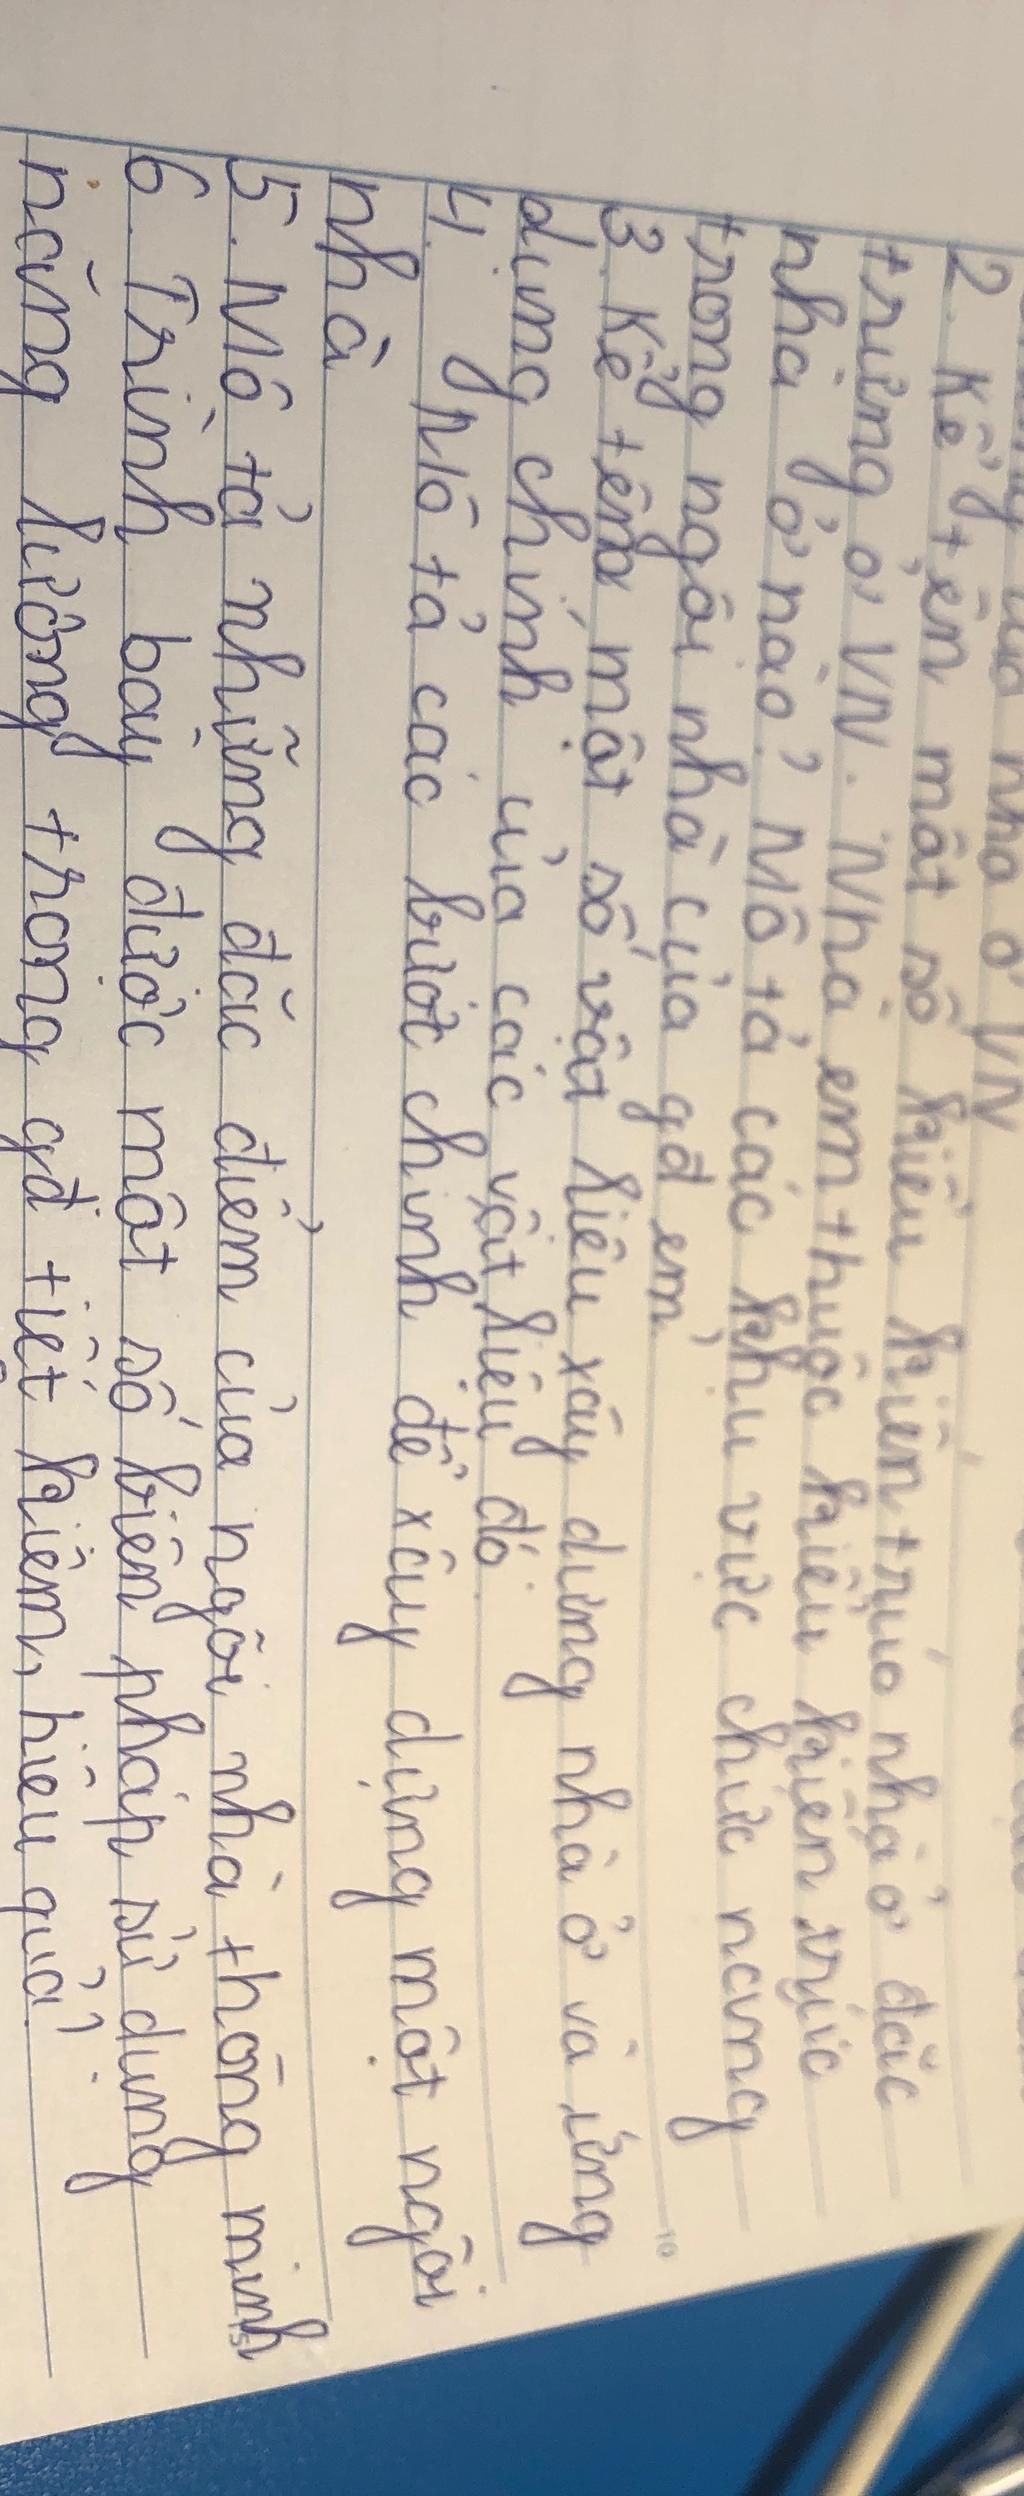 của nhà ở VN
2. Kể tên một số kiểu kiến trúc nhà ở đặc
trưng ở VN. Nhà em thuộc kiểu kiến trúc
nhà ở nào? Mô tả các khu vực chức năng
trong ngôi nhà của gđ em.
3. Kể tên một số vật liệu xây dựng nhà ở và ứng
dụng chính của các vật liệu đó.
4. Mô tả các bước chính để xây dựng một ngôi
nhà
5. Mô tả những đặc điểm của ngôi nhà thông minh
6. Trình bày được một số biện pháp sử dụng
năng lượng trong gđ tiết kiệm, hiệu quả?